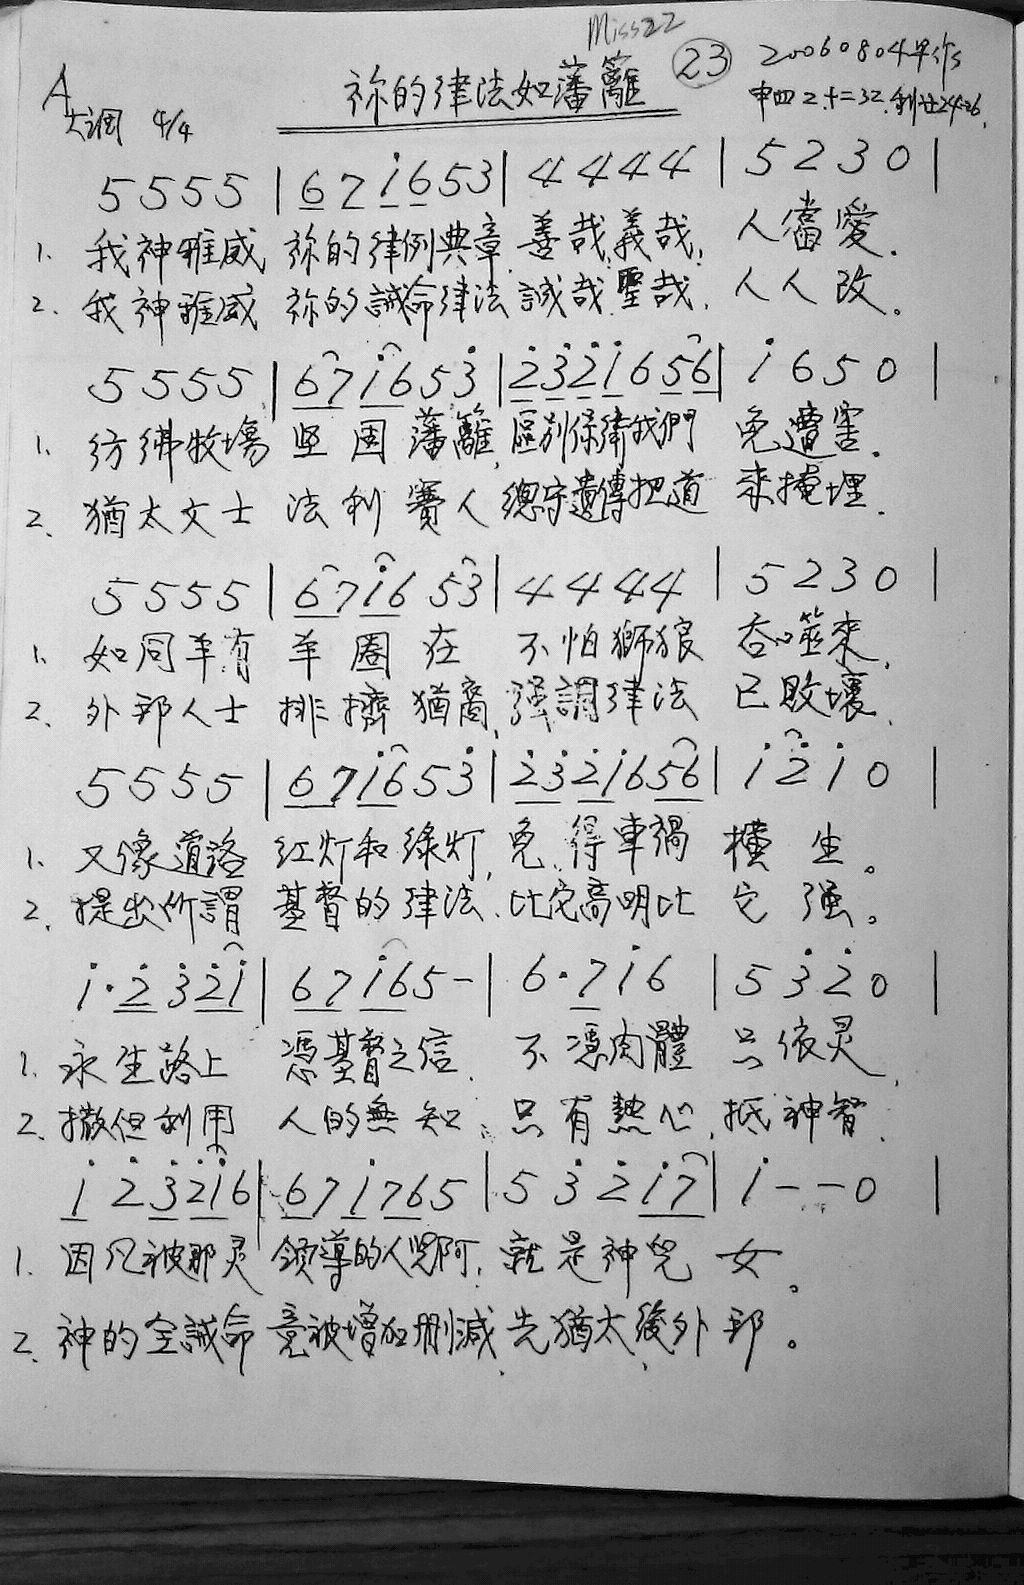 Miss22
祢的律法如藩籬 23 20060804早作
申四2.十二32.利廿24-26.
A大调 4/4
5 5 5 5 | 6 7 i 6 5 3 | 4 4 4 4 | 5 2 3 0 |
1. 我神雅威 祢的律例典章 善哉義哉, 人當愛.
2. 我神雅威 祢的誡命律法 誠哉聖哉. 人人改。
5 5 5 5 | 6 7 i 6 5 3̇ | 2̇ 3̇ 2̇ i 6 5 6 | i 6 5 0 |
1. 彷彿牧場 坚固藩籬, 區别保衛我們 免遭害.
2. 猶太文士 法利賽人 總守遺傳把道 來掩埋.
5 5 5 5 | 6 7 i 6 5 3 | 4 4 4 4 | 5 2 3 0 |
1. 如同羊有 羊圈在 不怕獅狼 吞噬來,
2. 外邦人士 排擠猶裔, 强調律法 已敗壞.
5 5 5 5 | 6 7 i 6 5 3̇ | 2̇ 3̇ 2̇ i 6 5 6 | i 2̇ i 0 |
1. 又像道路 红灯和绿灯, 免得車禍 橫生。
2. 提出所謂 基督的律法. 比它高明比 它强。
i · 2̇ 3̇ 2̇ i | 6 7 i 6 5 – | 6 · 7 i 6 | 5 3̇ 2̇ 0 |
1. 永生路上 憑基督之信. 不憑肉體 只依灵,
2. 撒但利用 人的無知. 只有熱心, 抵神智.
i 2̇ 3̇ 2̇ i 6 | 6 7 i 7 6 5 | 5 3̇ 2̇ i 7 | i – – 0 |
1. 因凡被那灵 领導的人兒阿, 就是神兒女。
2. 神的全誡命 竟被增加删減, 先猶太後外邦。